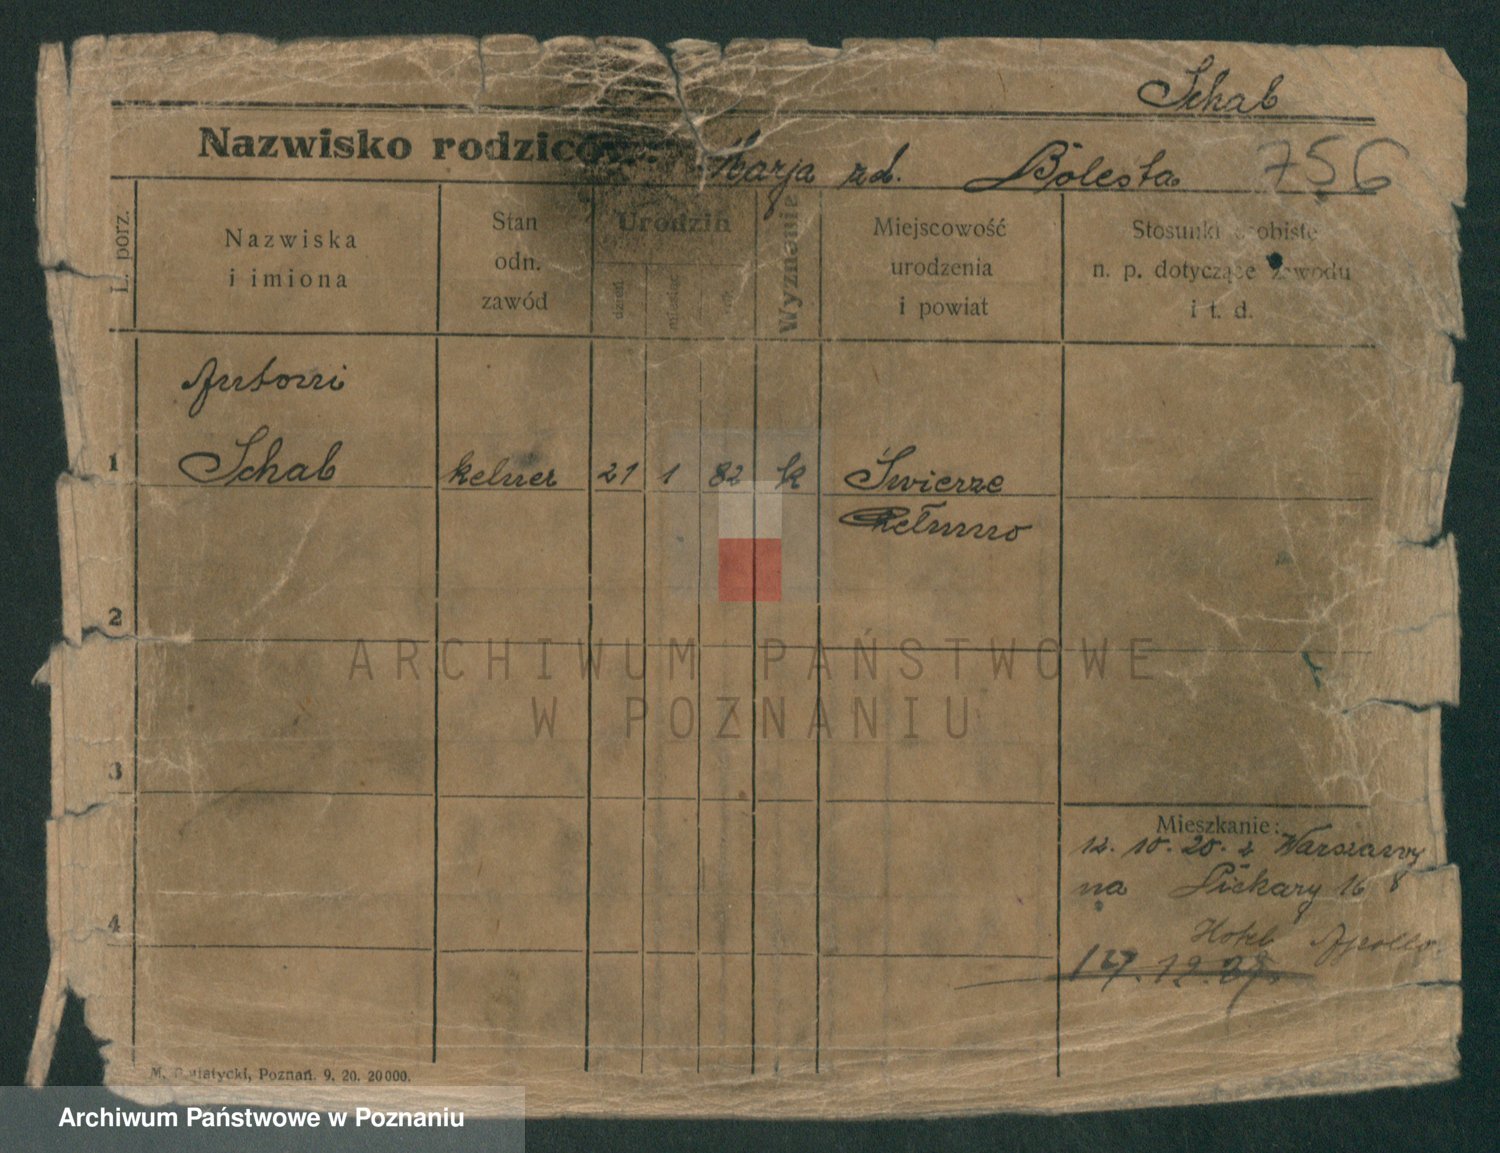 Schab
Nazwisko rodziców: Marja zd. Bolesta 756
L. porz.
Nazwiska
i imiona
Stan
odn.
zawód
Urodzin
dzień
miesiąc
rok
Wyznanie
Miejscowość
urodzenia
i powiat
Stosunki osobiste
n. p. dotyczące zawodu
i t. d.
Antoni
1 Schab kelner 21 1 82 k Świerze
Chełmno
2
3
4
Mieszkanie:
12. 10. 20. z Warszawy
na Piekary 16 8
Hotel Apollo
17. 12. 
M. Putiatycki, Poznań. 9. 20. 20000.
ARCHIWUM PAŃSTWOWE
W POZNANIU
Archiwum Państwowe w Poznaniu